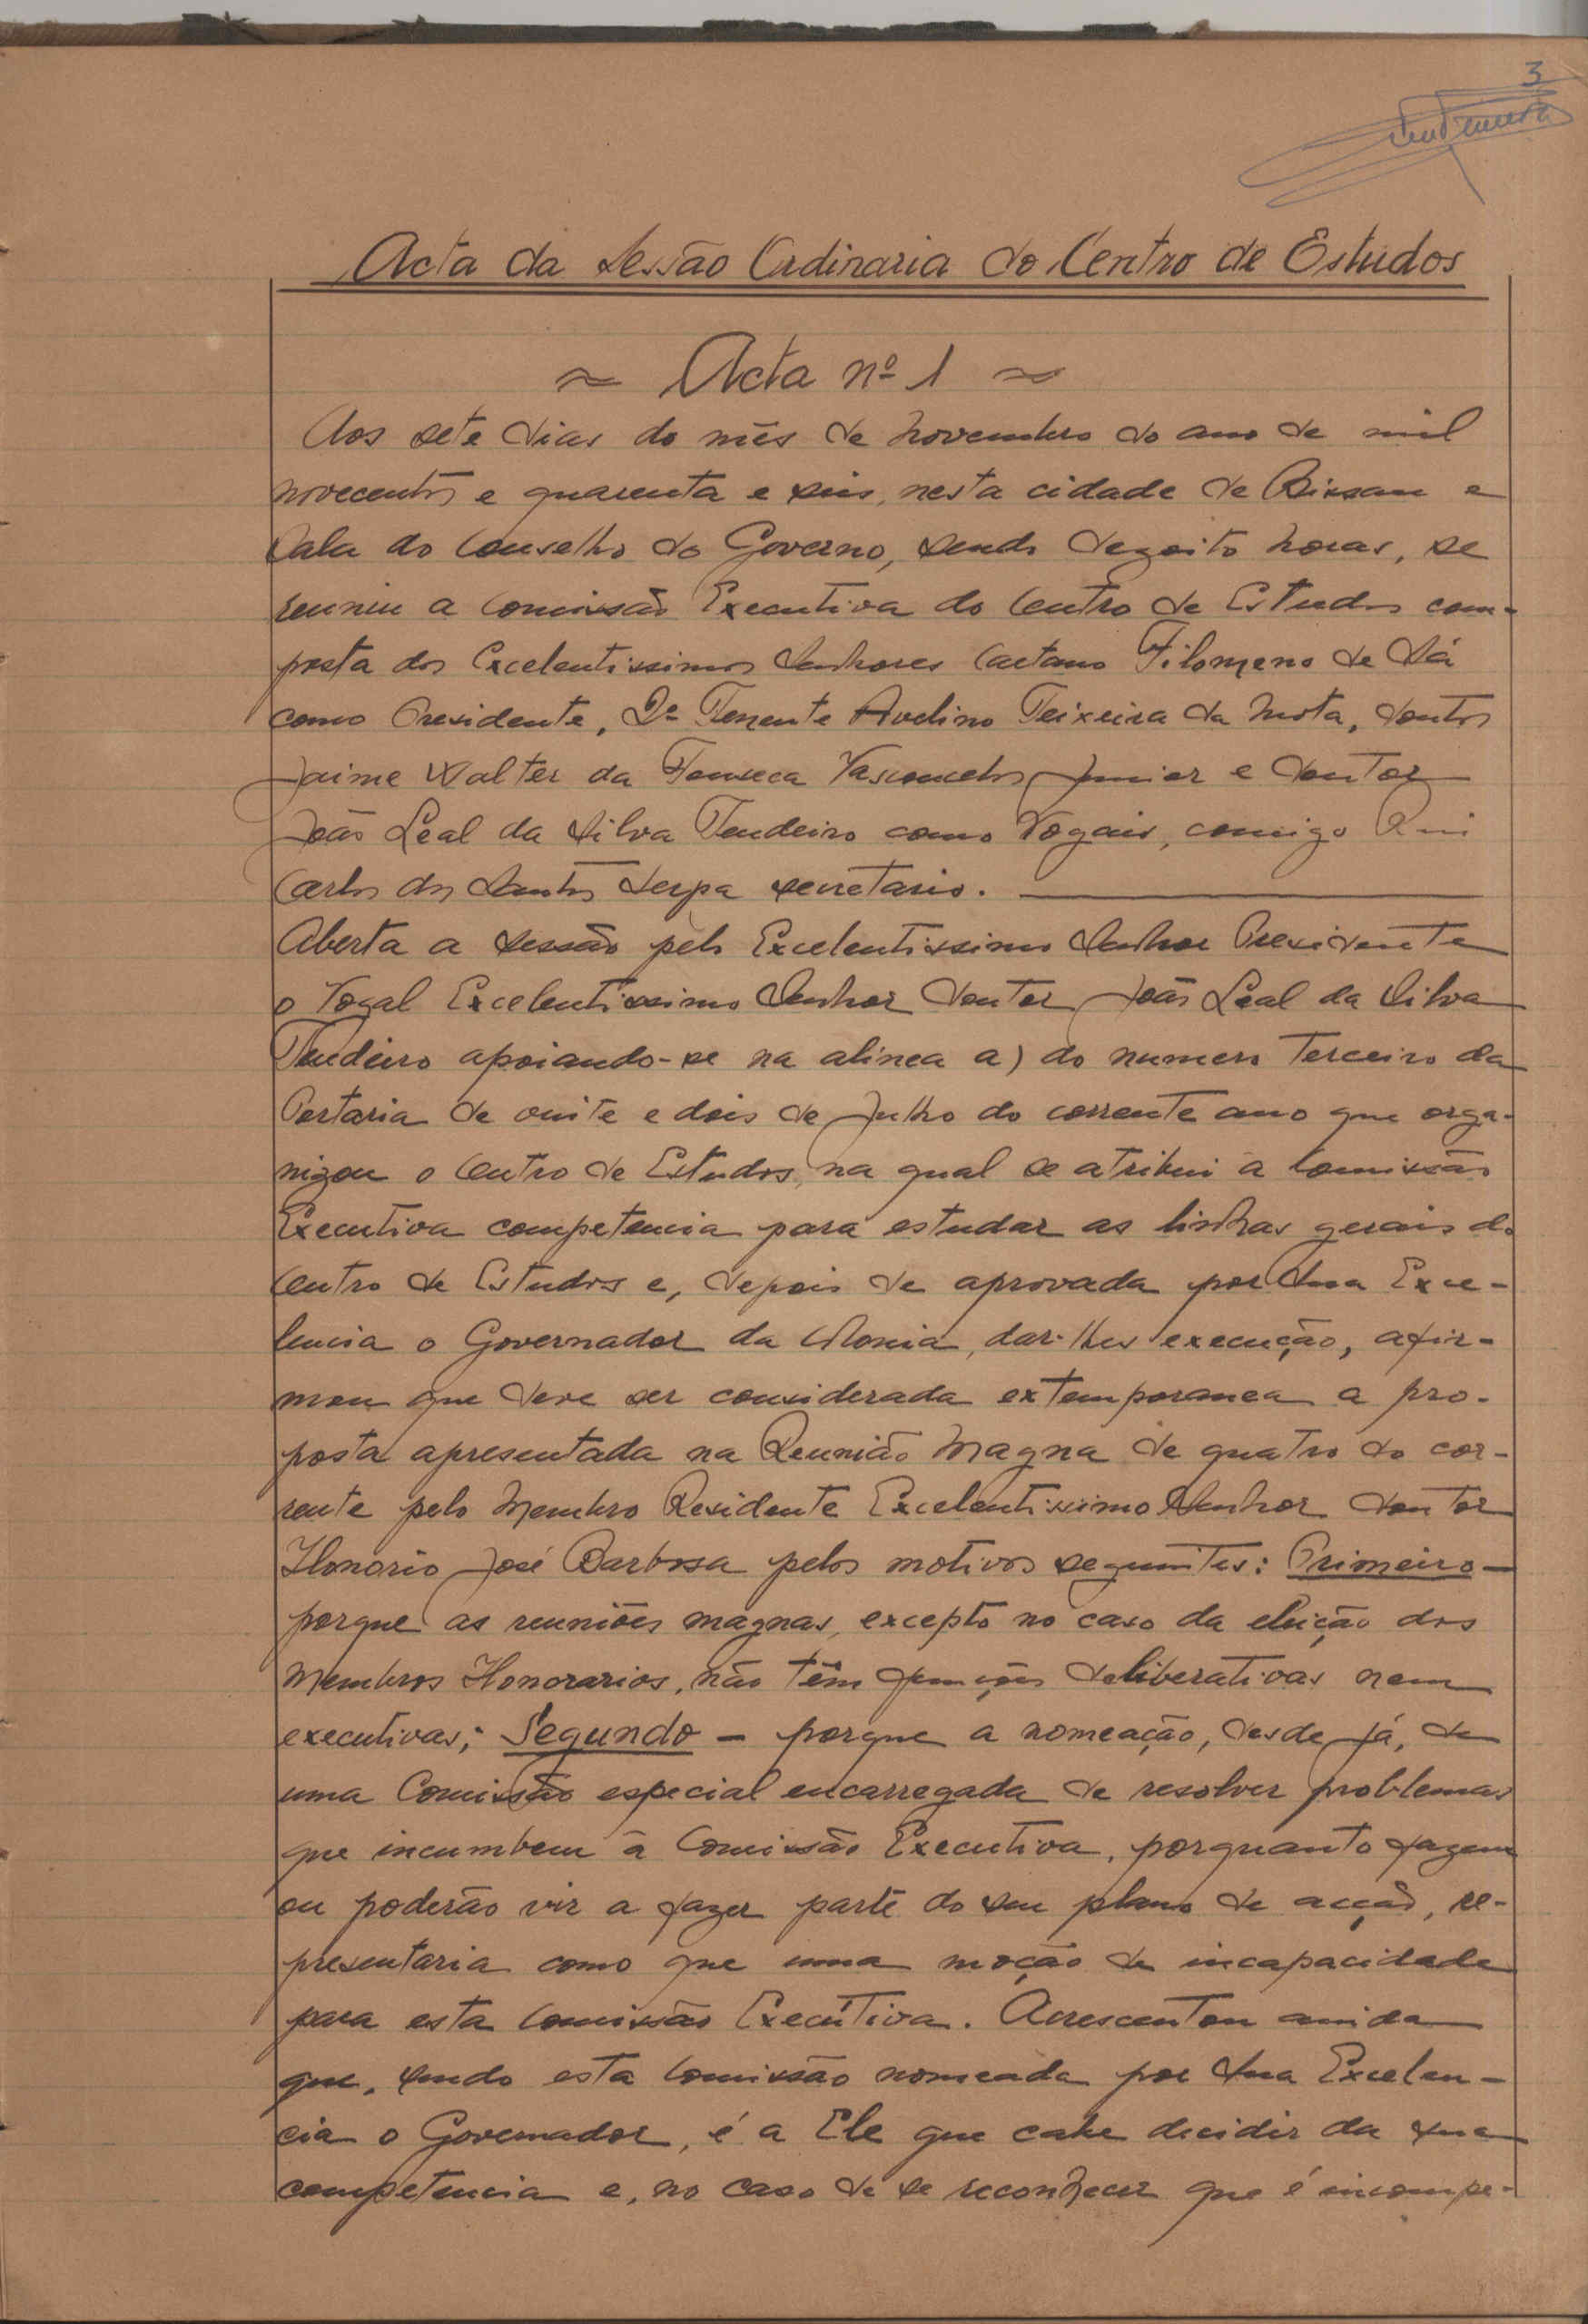 3
Acta da Sessão Ordinaria do Centro de Estudos
~ Acta nº 1 ~
Aos sete dias do mês de Novembro do ano de mil
novecentos e quarenta e seis, nesta cidade de Bissau e
Sala do Conselho do Governo, sendo dezoito horas, se
reuniu a Comissão Executiva do Centro de Estudos com-
posta dos Excelentissimos Senhores Caetano Filomeno de Sá
como Presidente, 2º Tenente Avelino Teixeira da Mota, doutor
Jaime Walter da Fonseca Vasconcelos Junior e Doutor
João Leal da Silva Tendeiro como Vogais, comigo Rui
Carlos dos Santos Serpa secretario.
Aberta a sessão pelo Excelentissimo Senhor Presidente
o Vogal Excelentissimo Senhor Doutor João Leal da Silva
Tendeiro apoiando-se na alinea a) do numero terceiro da
Portaria de vinte e dois de Julho do corrente ano que orga-
nizou o Centro de Estudos, na qual se atribui à Comissão
Executiva competencia para estudar as linhas gerais do
Centro de Estudos e, depois de aprovada por Sua Exce-
lencia o Governador da Colonia, dar-lhes execução, afir-
mou que deve ser considerada extemporanea a pro-
posta apresentada na Reunião Magna de quatro do cor-
rente pelo Membro Residente Excelentissimo Senhor Doutor
Honorio José Barbosa pelos motivos seguintes: Primeiro -
porque as reuniões magnas, excepto no caso da eleição dos
Membros Honorarios, não têm funções deliberativas nem
executivas; Segundo - porque a nomeação, desde já, de
uma Comissão especial encarregada de resolver problemas
que incumbem à Comissão Executiva, porquanto fazem
ou poderão vir a fazer parte do seu plano de acção, re-
presentaria como que uma moção de incapacidade
para esta Comissão Executiva. Acrescentou ainda
que, sendo esta Comissão nomeada por Sua Excelen-
cia o Governador, é a Ele que cabe decidir da sua
competencia e, no caso de se reconhecer que é incompe-